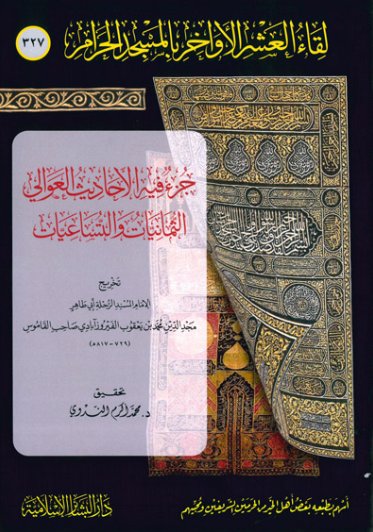 لقاء العشر الأواخر بالمسجد الحرام
٣٢٧
جزء فيه الأحاديث العوالي
الثمانيات والتساعيات
تخريج
الإمام المسند الرحلة أبي طاهر
مجد الدين محمد بن يعقوب الفيروزآبادي صاحب القاموس
(٧٢٩-٨١٧ه)
تحقيق
د. محمد أكرم الندوي
أسهم بطبعه بعض أهل الخير من الحرمين الشريفين ومحبيهم
دار البشائر الإسلامية